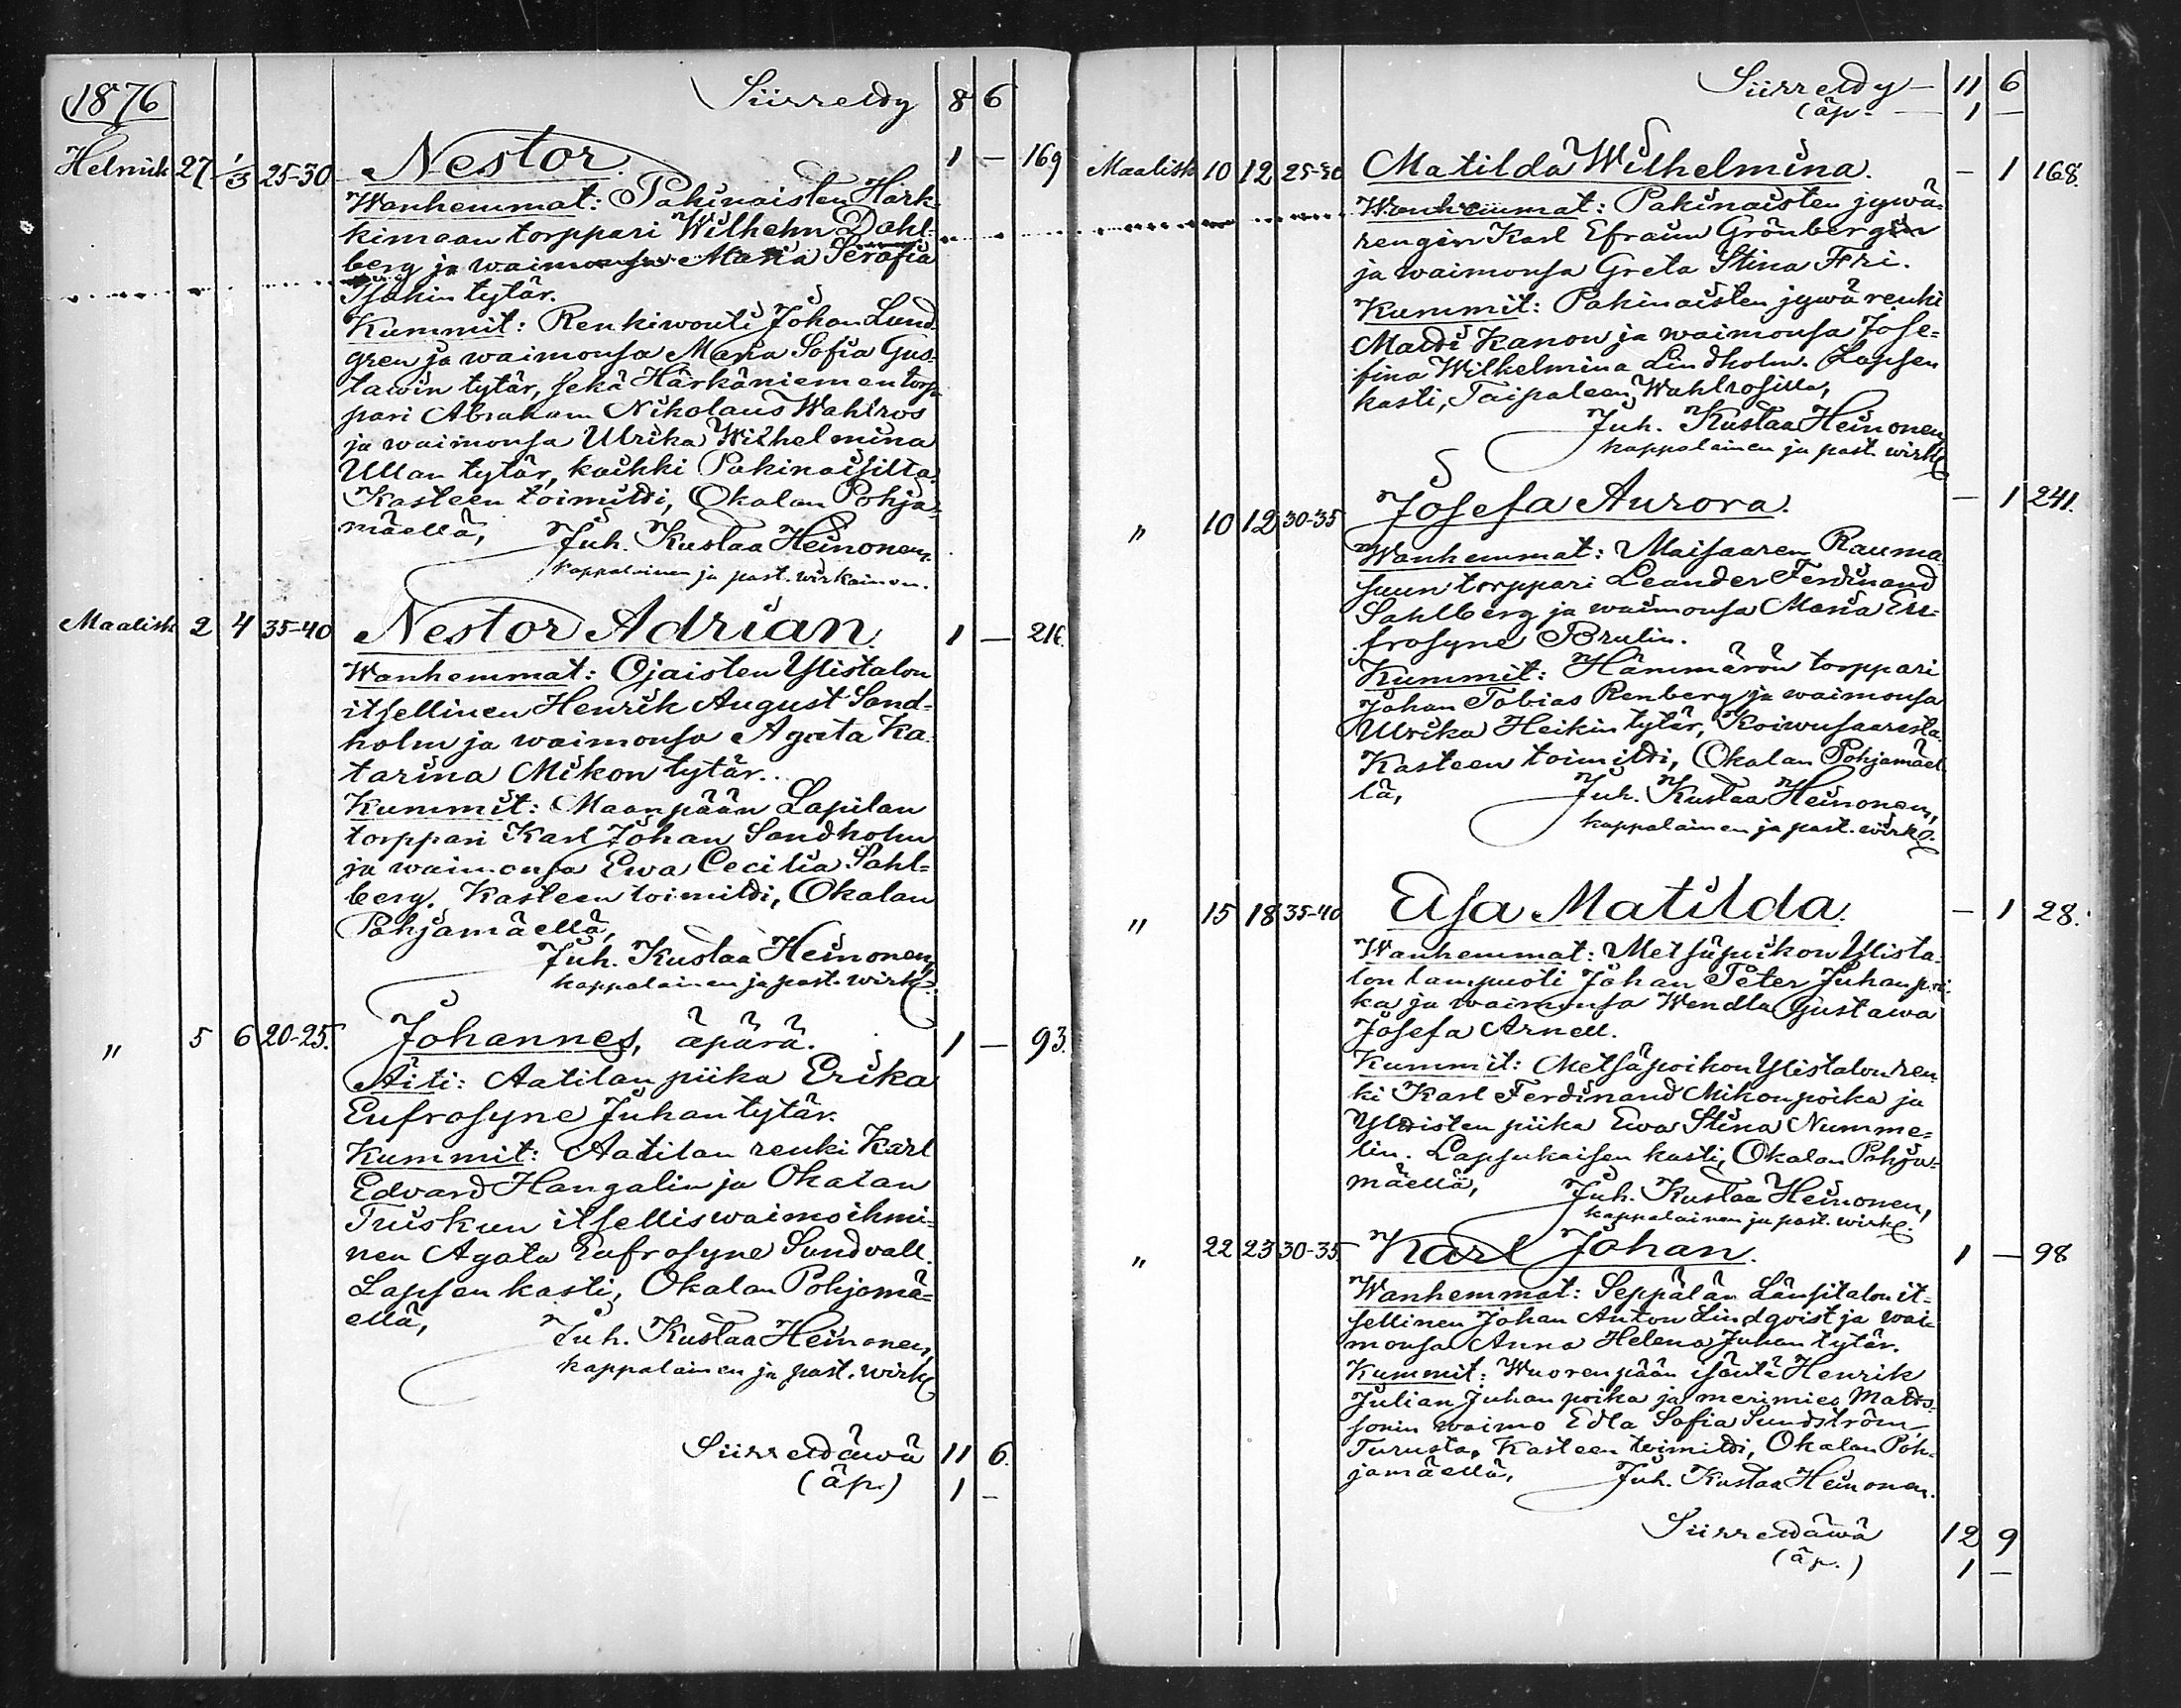 1876 Siirretty 8 6
Helmik 27 1/3 25-30 Nestor. 1 — 169
Wanhemmat: Pakinaisten Härk-
kimaan torppari Wilhelm Dahl-
berg ja waimonsa Maria Serafia
Isakin tytär.
Kummit: Renkiwouti Johan Lund-
gren ja waimonsa Maria Sofia Gus-
tawin tytär, sekä Härkäniemen torp-
pari Abraham Nikolaus Wahlros
ja waimonsa Ulrika Wilhelmina
Ullan tytär, kaikki Pakinaisilta.
Kasteen toimitti, Okalan Pohja-
mäellä, Juh. Kustaa Heinonen,
kappalainen ja past. wirkainen.
Maalisk 2 4 35-40 Nestor Adrian. 1 — 216.
Wanhemmat: Ojaisten Ylistalon
itsellinen Henrik August Sand-
holm ja waimonsa Agata Ka-
tarina Mikon tytär.
Kummit: Maanpään Lapilan
torppari Karl Johan Sandholm
ja waimonsa Ewa Cecilia Sahl-
berg. Kasteen toimitti, Okalan
Pohjamäellä,
Juh. Kustaa Heinonen,
kappalainen ja past. wirk.
" 5 6 20-25. Johannes, äpärä. 1 — 93.
Äiti: Aatilan piika Erika
Eufrosyne Juhan tytär.
Kummit: Aatilan renki Karl
Edvard Hangelin ja Okalan
Truskun itsellis waimoihmi-
nen Agata Eufrosyne Sundvall.
Lapsen kasti, Okalan Pohjamä-
ellä,
Juh. Kustaa Heinonen,
kappalainen ja past. wirk
Siirrettäwä 11 6.
(äp.) 1 —
Siirretty — 11 6
(äp. — 1 —
Maalisk 10 12 25-30 Matilda Wilhelmina. — 1 168.
Wanhemmat: Pakinaisten jywä-
rengin Karl Efraim Grönbergin
ja waimonsa Greta Stina Fri.
Kummit: Pakinaisten jywärenki
Matti Kanon ja waimonsa Jose-
fina Wilhelmina Lindholm. Lapsen
kasti, Taipaleen Wahlrosilla,
Juh. Kustaa Heinonen,
kappalainen ja past. wirk
" 10 12 30-35 Josefa Aurora. — 1 241.
Wanhemmat: Maisaaren Rauma-
suun torppari Leander Ferdinand
Sahlberg ja waimonsa Maria Eu-
frosyne Brulin.
Kummit: Hämmärön torppari
Johan Tobias Renberg ja waimonsa
Ulrika Heikin tytär, Koiwusaaresta.
Kasteen toimitti, Okalan Pohjamäel-
lä, Juh. Kustaa Heinonen,
kappalainen ja past. wirk.
" 15 18 35-40 Elsa Matilda. — 1 28.
Wanhemmat: Metsäpoikon Ylista-
lon lampuoti Johan Peter Juhan poi-
ka ja waimonsa Wendla Gustawa
Josefa Arnell.
Kummit: Metsäpoikon Ylistalon ren-
ki Karl Ferdinand Mikonpoika ja
piika Ewa Stina Numme-
lin. Lapsukaisen kasti, Okalan Pohja-
mäellä, Juh. Kustaa Heinonen,
kappalainen ja past. wirk.
" 22 23 30-35. Karl Johan. 1 — 98
Wanhemmat: Seppälän Länsitalon it-
sellinen Johan Anton Lindqvist ja wai-
monsa Anna Helena Juhan tytär.
Kummit: Wuorenpään isäntä Henrik
Julian Juhan poika ja merimies Matts-
sonin waimo Edla Sofia Sundström
Turusta. Kasteen toimitti, Okalan Poh-
jamäellä, Juh. Kustaa Heinonen.
Siirrettäwä 12 9
(äp.) 1 —